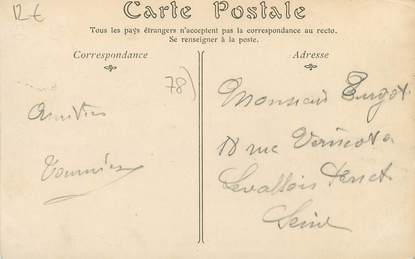 12€
Carte Postale
Tous les pays étrangers n'acceptent pas la correspondance au recto.
Se renseigner à la poste.
Correspondance
Adresse
78)
Amitiés
Monsieur Turgot
18 rue
Levallois Perret
Seine